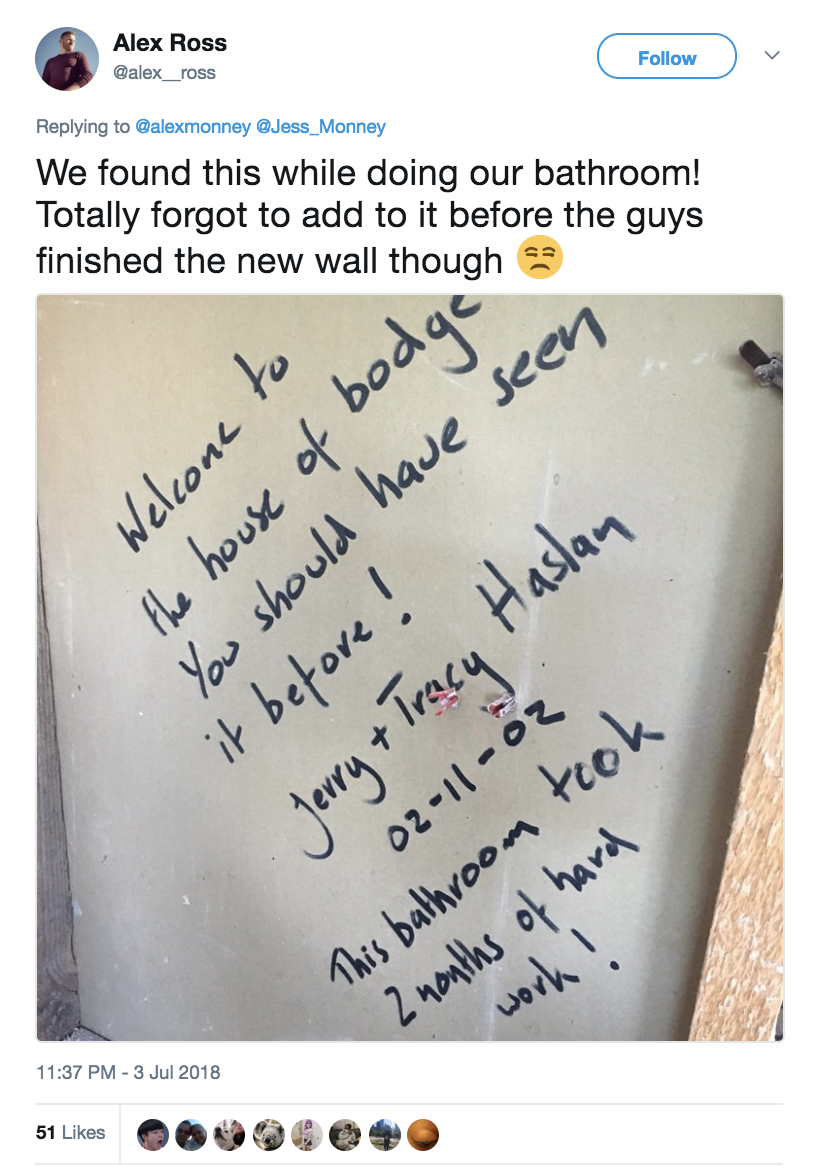 Alex Ross
@alex__ross
Follow
Replying to @alexmonney @Jess_Monney
We found this while doing our bathroom!
Totally forgot to add to it before the guys
finished the new wall though 😒
Welcome to
the house of bodge
You should have seen
it before!
Jerry + Tracy Haslam
02-11-02
This bathroom took
2 months of hard
work!
11:37 PM - 3 Jul 2018
51 Likes